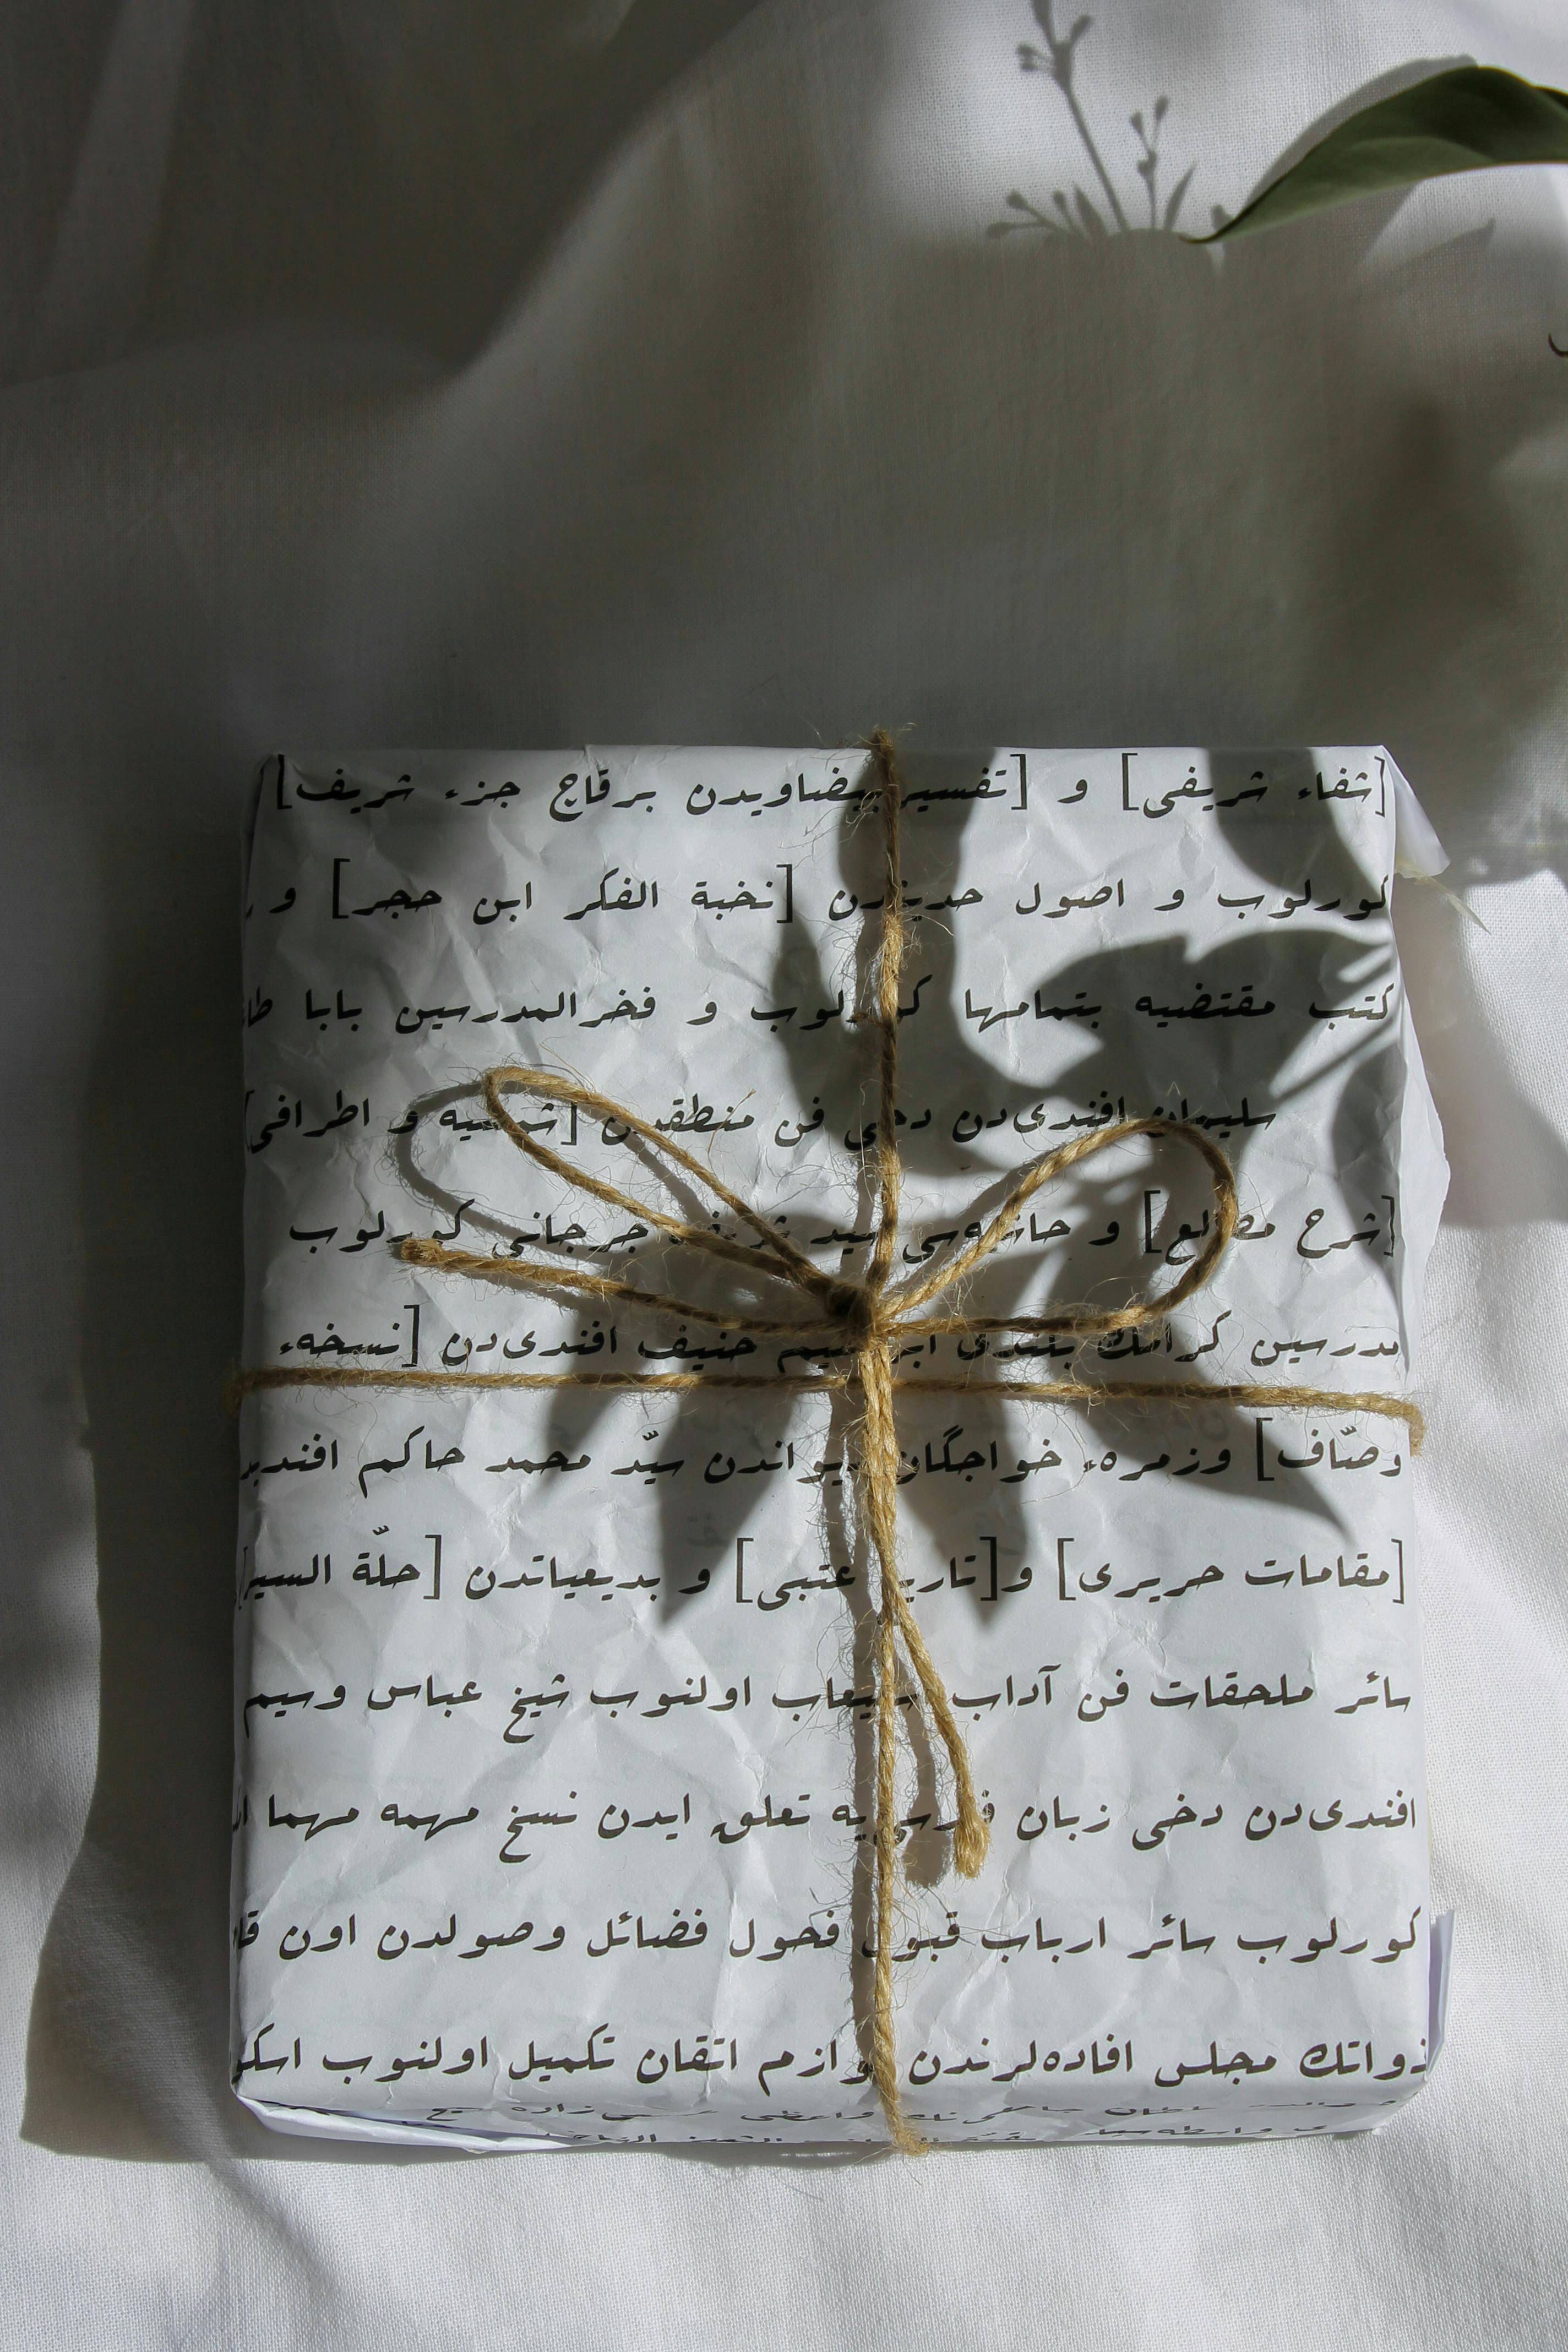 [شفاء شريفى] و [تفسير بيضاويدن برقاچ جزء شريف]
كورلوب و اصول حديثدن [نخبة الفكر ابن حجر] و
كتب مقتضيه بتمامها كورلوب و فخرالمدرسين بابا
سليمان افندى‌دن دخى فن منطقدن [شمسيه و اطرافى]
[شرح مطالع] و حاشيه‌سى سيد شريف جرجانى كورلوب
مدرسين كرامك بنندى ابراهيم حنيف افندى‌دن [نسخهء
وصّاف] وزمرهء خواجگان ديواندن سيّد محمد حاكم
[مقامات حريرى] و[تاريخ عتبى] و بديعياتدن [حلّة السير]
سائر ملحقات فن آداب استيعاب اولنوب شيخ عباس وسيم
افندى‌دن دخى زبان فارسى‌يه تعلق ايدن نسخ مهمه مهما
كورلوب سائر ارباب قبول فحول فضائل وصولدن اون
ذواتك مجلس افاده‌لرندن لوازم اتقان تكميل اولنوب